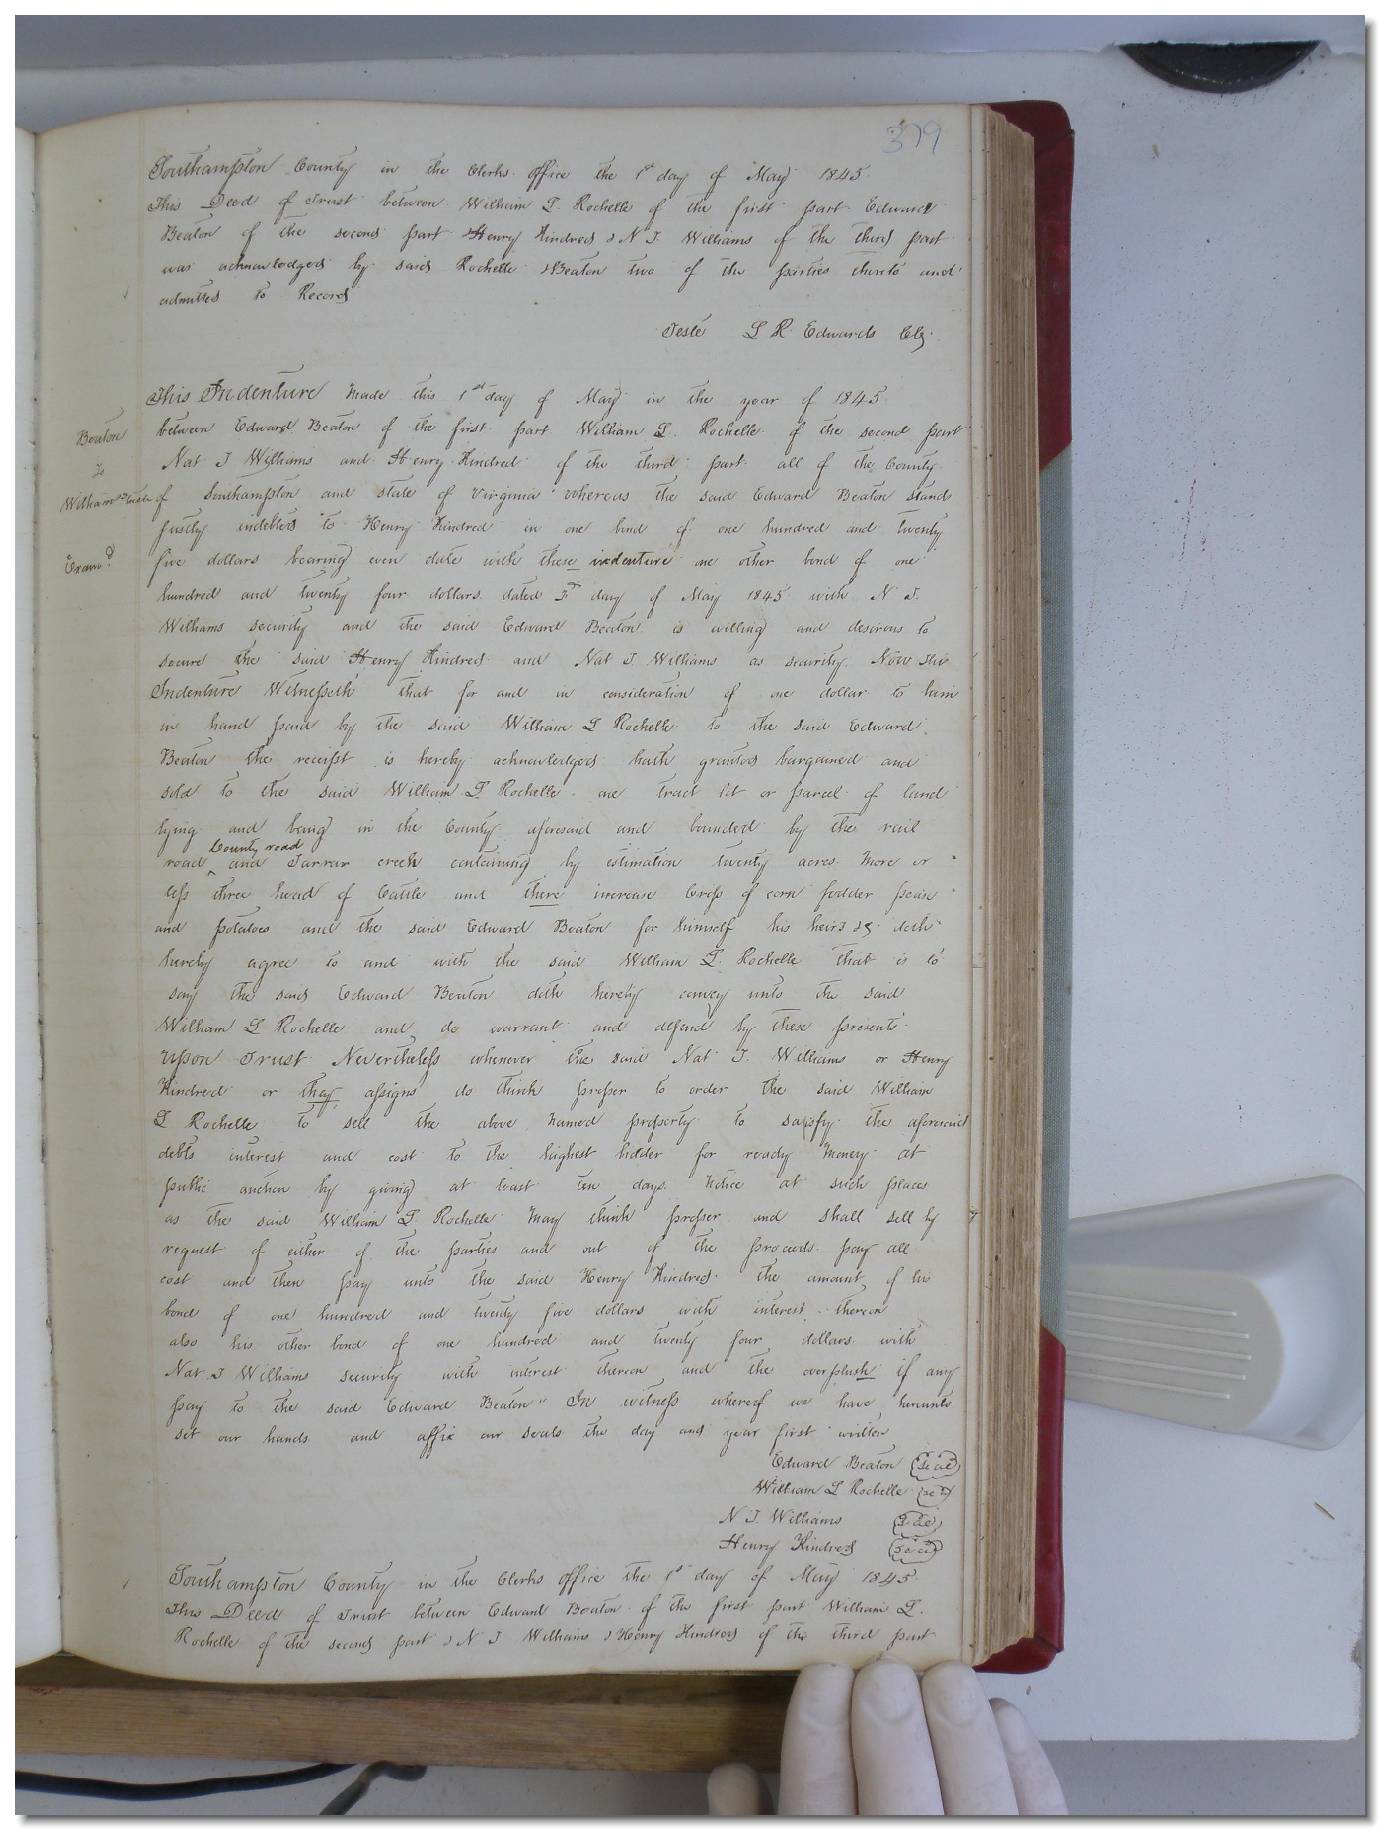 379
Southampton County in the Clerks office the 1st day of May 1845
This Deed of Trust between William L. Rochelle of the first part Edward
Beaton of the second part Henry Kindred & N J. Williams of the third part
was acknowledged by said Rochelle & Beaton two of the parties thereto and
admitted to Record
Teste L R. Edwards Clk.
This Indenture Made this 1st day of May in the year of 1845
Beaton
between Edward Beaton of the first part William L. Rochelle of the second part
To
Nat J Williams and Henry Kindred of the third part all of the County
Williams
of Southampton and state of Virginia whereas the said Edward Beaton stand
justly indebted to Henry Kindred in one bond of one hundred and twenty
Exam.d
five dollars bearing even date with these indenture one other bond of one
hundred and twenty four dollars dated day of May 1845 with N J.
Williams security and the said Edward Beaton is willing and desirous to
secure the said Henry Kindred and Nat J Williams as security. Now this
Indenture Witnesseth that for and in consideration of one dollar to him
in hand paid by the said William L Rochelle to the said Edward
Beaton the receipt is hereby acknowledged hath granted bargained and
sold to the said William L. Rochelle one tract lot or parcel of land
lying and being in the County aforesaid and bounded by the rail
County road
road and Tarrar creek containing by estimation twenty acres More or
less three head of Cattle and there increase Crop of corn fodder peas
and potatoes and the said Edward Beaton for himself his heirs &c doth
hereby agree to and with the said William L. Rochelle that is to
say the said Edward Beaton doth hereby convey unto the said
William L Rochelle and do warrant and defend by these presents
Upon Trust Nevertheless whenever the said Nat J. Williams or Henry
Kindred or they assigns do think proper to order the said William
L Rochelle to sell the above named property to satisfy the aforesaid
debts interest and cost to the highest bidder for ready Money at
public auction by giving at least ten days Notice at such places
as the said William L. Rochelle May think proper and shall sell by
request of either of the parties and out of the proceeds pay all
cost and then pay unto the said Henry Kindred the amount of his
bond of one hundred and twenty five dollars with interest thereon
also his other bond of one hundred and twenty four dollars with
Nat J Williams security with interest thereon and the overplush if any
pay to the said Edward Beaton" In witness whereof we have hereunto
set our hands and affix our seals the day and year first written
Edward Beaton Seal
William L Rochelle Seal
N J. Williams Seal
Henry Kindred Seal
Southampton County in the Clerks office the 1st day of May 1845
This Deed of Trust between Edward Beaton of the first part William L.
Rochelle of the second part & N J Williams & Henry Kindred of the third part